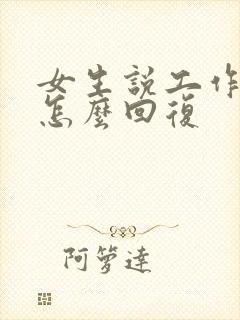 女生說工作
怎麼回復
阿箩達